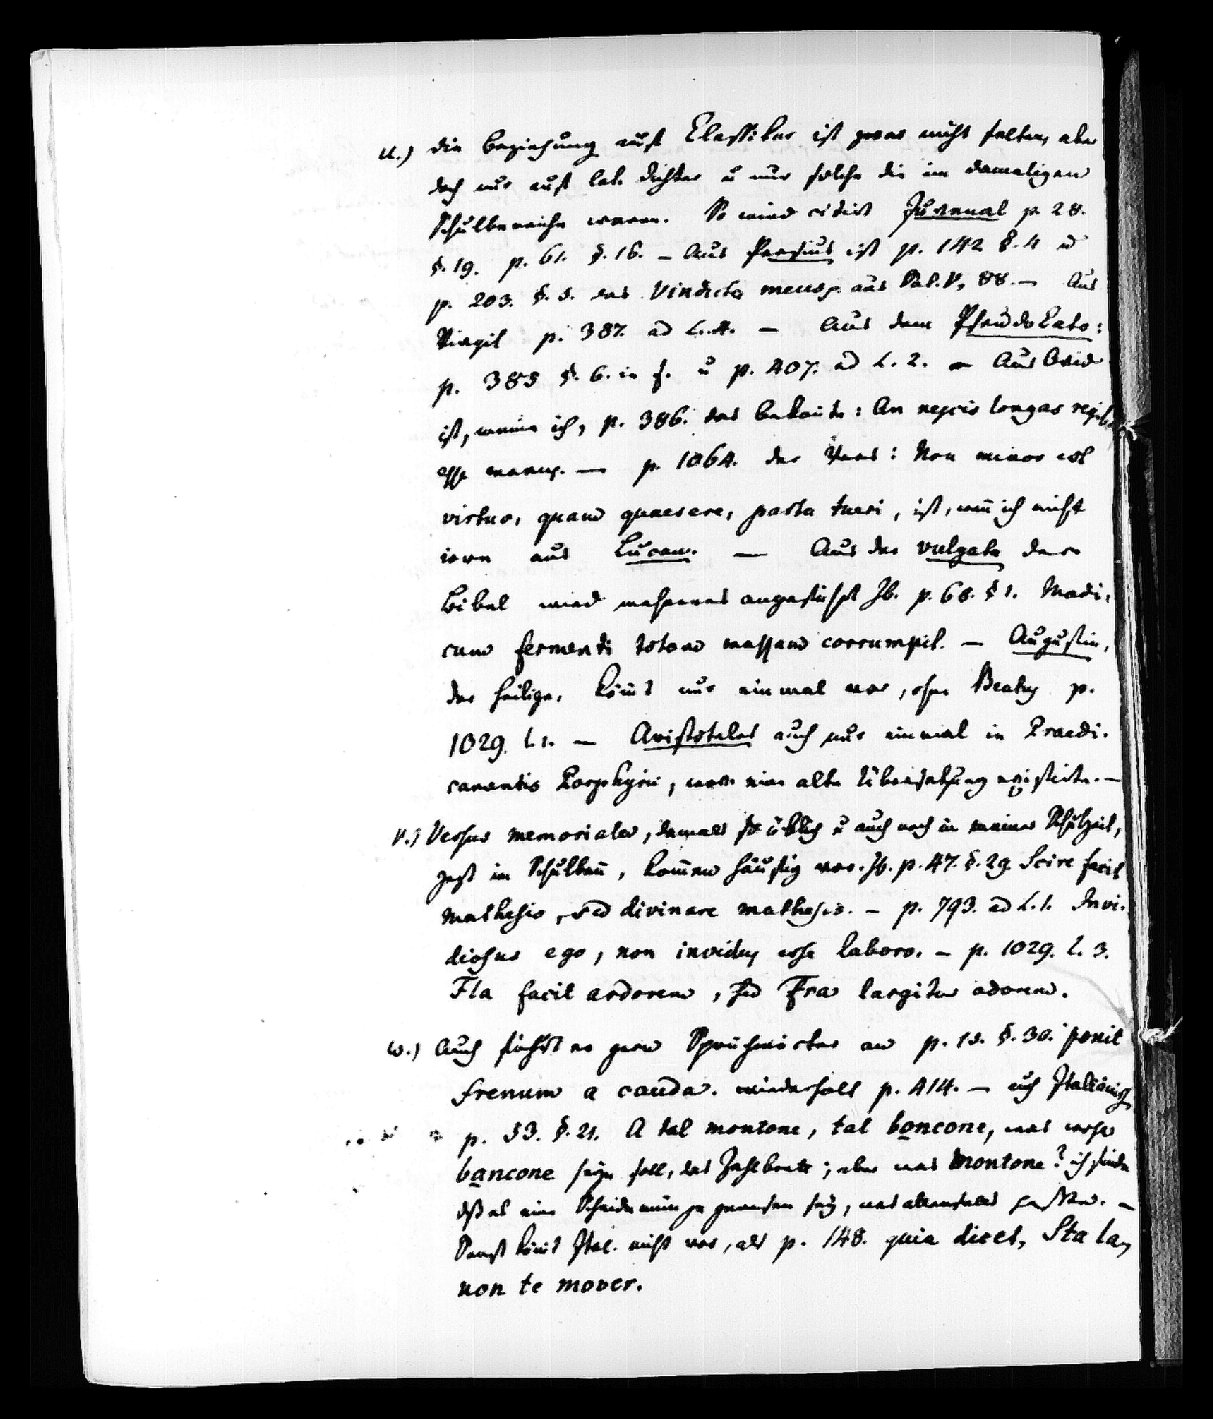 u.) die Beziehung auf Classiker ist zwar nicht selten, aber
doch nur auf lat. Dichter u nur solche die im damaligen
Schulbereiche waren. So wird citirt Juvenal p. 28.
§. 19. p. 61. §. 16. – Aus Persius ist p. 142 §. 4 u
p. 203. §. 5. das Vindicta meus p. aus Sat. V, 88. – Aus
Virgil p. 387. ad L. 4. – Aus dem PseudoCato:
p. 385 §. 6. in f. u p. 407. ad L. 2. – Aus Ovid
ist, meine ich, p. 386. das bekannte: An nescis longas regibus
esse manus. – p. 1064. der Vers: Non minor est
virtus, quam quaerere, parta tueri, ist, wenn ich nicht
irre aus Lucan. – Aus der Vulgata der
Bibel wird mehreres angeführt Zb. p. 68. § 1. Modi-
cum fermenti totam massam corrumpit. – Augustin,
der heilige, kömt nur einmal vor, ohne Beatus p.
1029. L 1. – Aristoteles auch nur einmal in Praedi-
camentis Porphyrii, wovon eine alte Übersetzung existirte. –
v.) Versus memoriales, damals so üblich u auch noch in meiner Schulzeit,
jetzt im Schulbann, kommen häufig vor. Zb. p. 47. §. 29. Scire facit
mathesis, sed divinare mathesis. – p. 793. ad L. 1. Invi-
diosus ego, non invidus esse laboro. – p. 1029. L. 3.
Fla facit ardorem, sed Fra largitur odorem.
w.) Auch führt er gern Sprüchwörter an p. 15. §. 30. ponit
frenum a cauda. wiederholt p. 414. – auch Italiänisch
p. 53. §. 21. A tal montone, tal bancone, was wohl
bancone seyn soll, das Zahlbrett; aber was Montone? ich finde
daß es eine Scheidemünze gewesen sey, was allenfalls paßte. –
Sonst kömt Ital. nicht vor, als p. 148. quia dicet, Sta la,
non te mover.